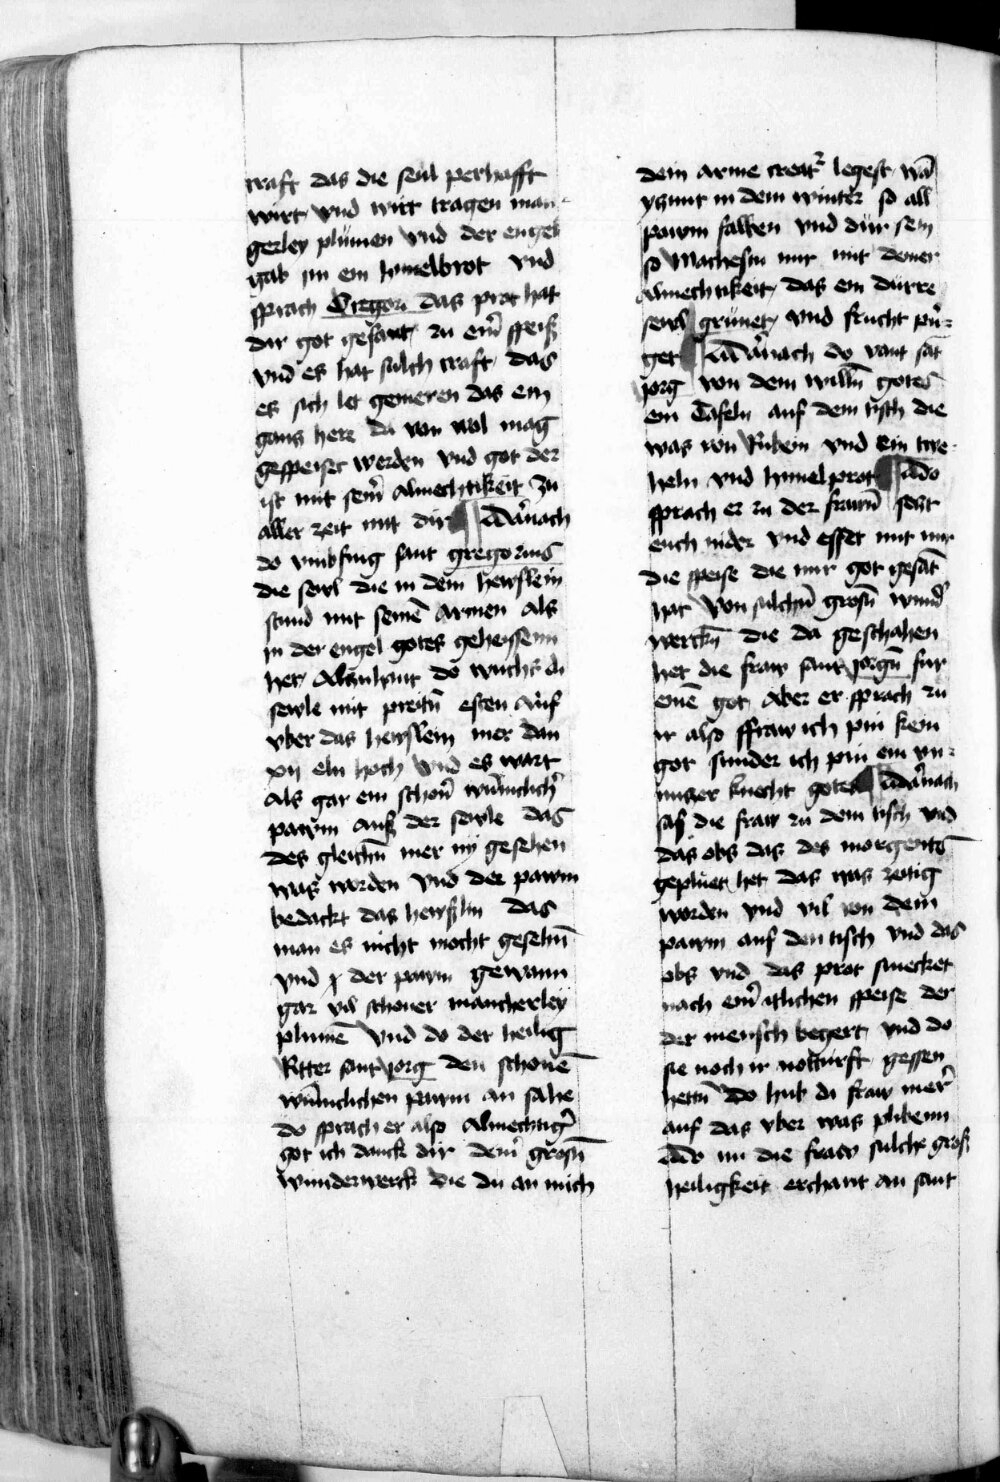 craft das die seul perhafft
wirt vnd wirt tragen man-
gerley plümen vnd der engel
gab im ein himelbrot vnd
sprach Gregori das prot hat
dir got gesant zu eim̄ speiß
vnd es hat sülch craft das
es sich let gemeren das ein
gans herr da von wol mag
gespeiset werden vnd got der
ist mit seim̄ almechtikeit zu
aller zeit mit dir Darnach
do vmbfing sant gregorius
die sewl die in dem hewslein
stund mit seinē armen als
in der engel gotes geheyssenn
het Alzuhant do wuchs di
sewle mit preitn̄ esten auf
vber das hewslein mer dan
xij eln hoch vnd es wart
als gar ein schon̄ wun̄iclich̄
pawm auß der sewle das
des gleichn̄ mer nÿ gesehen
was worden vnd der pawm
bedackt das hewßlin das
man es nicht mocht gesehn̄
vnd der pawm gewann
gar vil schoner mancherley
plumē vnd do der heilig
Ritter sant jorg den schonē
wun̄iclichen pawm an sahe
do sprach er also Almechtigr̄
got ich danck dir deinr̄ grosn̄
wunderwerck die du an mich
dein arme creatr̄ legest wā
ysunt in dem winter so all
pawm falben vnd dür sein
so machestu mir mit deiner
almechtikeit das ein dürre
sewl grünet vnd frucht prin-
get Darnach do vant sāt
jorg von dem willn̄ gotes
ein Tafeln auf dem tisch die
was von Rubein vnd ein twe-
heln vnd himelprot Do
sprach er zu der frawn̄ setzt
euch nider vnd esset mit mir
die speise die mir got gesāt
hat Von sülchn̄ grosn̄ wund̄
werckn̄ die da geschahen
het die fraw sant jorgn̄ für
einē got Aber er sprach zu
ir also ffraw ich pin kein
got sunder ich pin ein vn-
nutzer knecht gotes Darnach
saß die fraw zu dem tisch vnd
das obs das des morgentz̄
geplüet het das was zeitig
worden vnd vil von dem
pawm auf den tisch vnd das
obs vnd das prot smecket
nach einr̄ itlichen speise der
der mensch begert vnd do
sie noch ir notturft gessen
hettn̄ Do hub di fraw mer̄
auf das vber was plibenn
Do nu die fraw sülche groß
heiligkeit erchant an sant